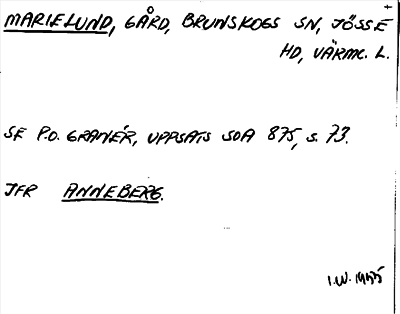 MARIELUND, GÅRD, BRUNSKOGS SN, JÖSSE
HD, VÄRML. L.
SE P.O. GRANÉR, UPPSATS SOA 875, S. 73.
JFR ANNEBERG.
I.W. 1955